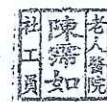 老人醫院
陳霈如
社工員